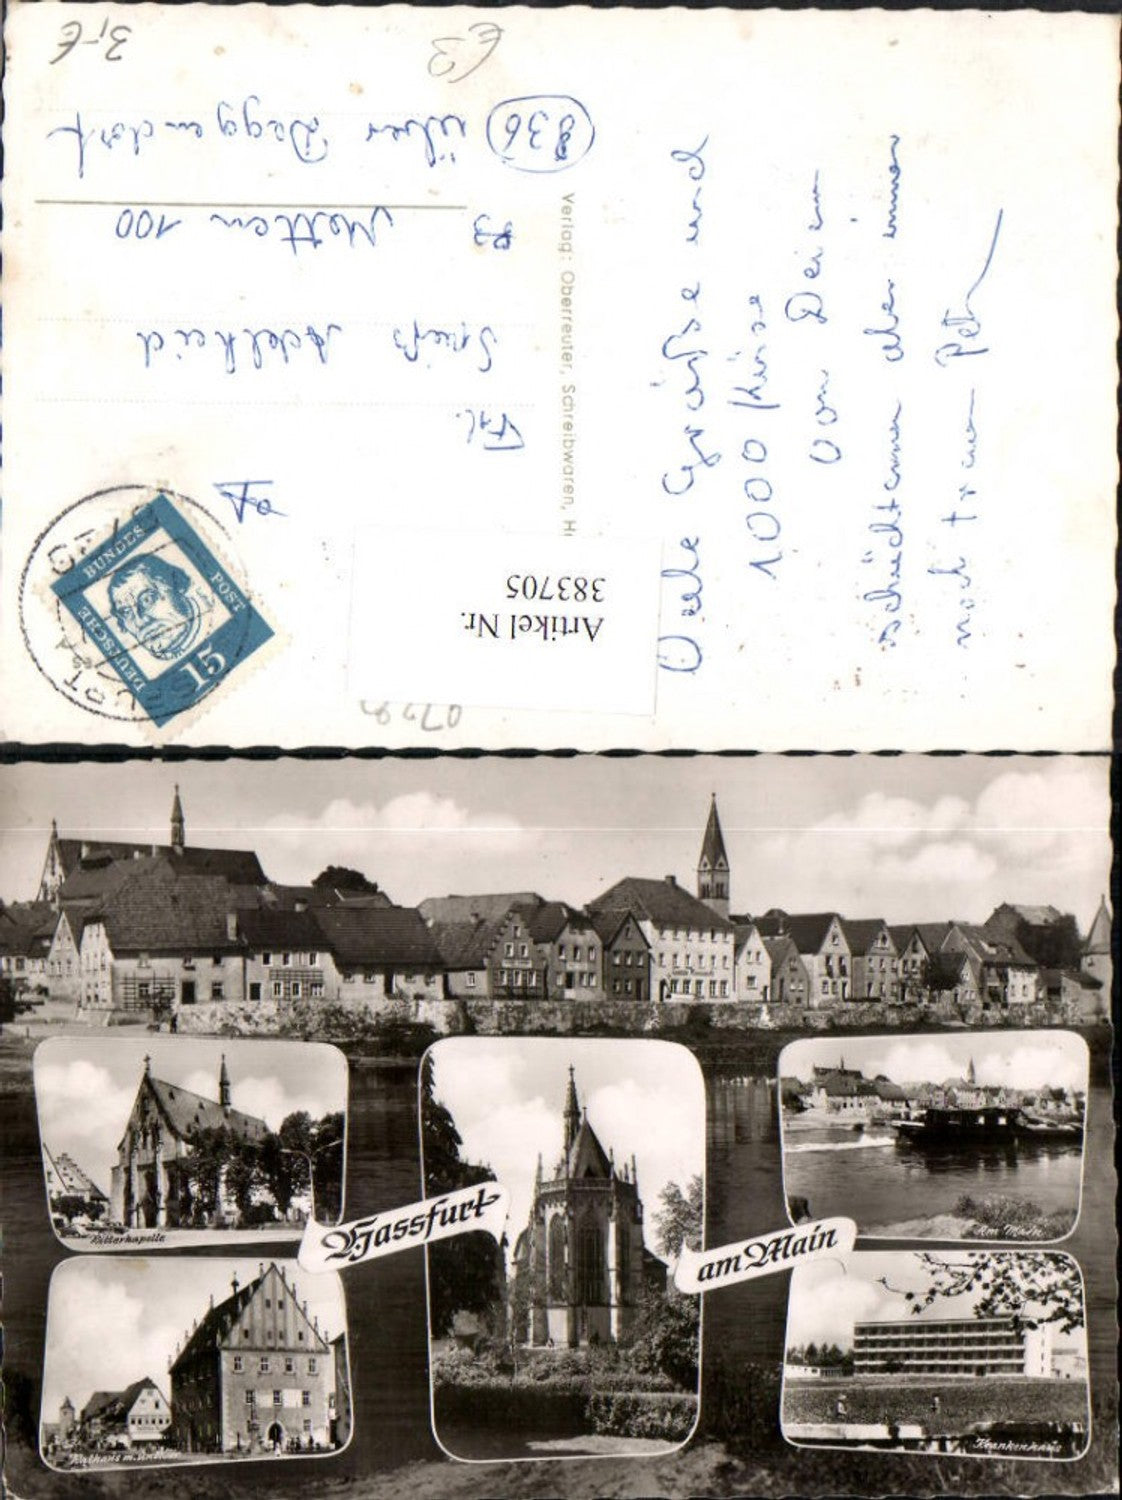 Viele Grüße und
1000 Küsse
von Deinem
schüchternen aber immer
noch treuen Peter
Verlag: Oberreuter, Schreibwaren, H
Frl.
Spieß Adelheid
83 Metten 100
836 über Deggendorf
3,-€
€3
DEUTSCHE
BUNDES
POST
15
Artikel Nr.
383705
Hassfurt
am Main
Ritterkapelle
Am Main
Rathaus m.
Krankenhaus